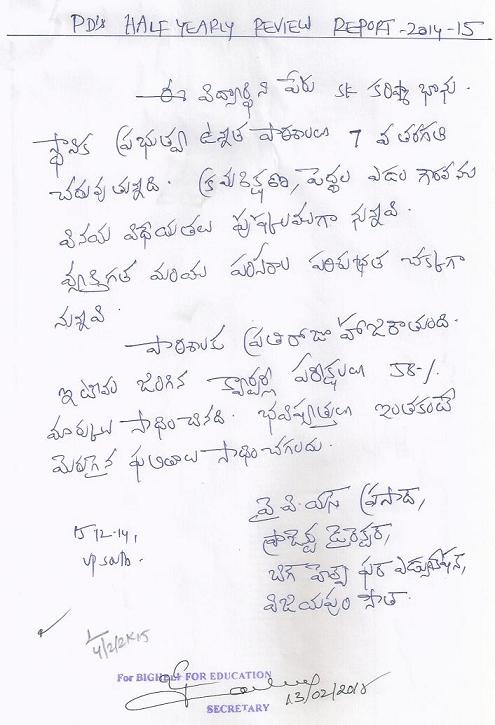 PD's HALF YEARLY REVIEW REPORT - 2014-15
ఈ విద్యార్థిని పేరు SK కరిష్మా భాను.
స్థానిక ప్రభుత్వ ఉన్నత పాఠశాలలు 7 వ తరగతి
చదువుతున్నది. క్రమశిక్షణ, పెద్దల ఎడల గౌరవము
వినయ విధేయతలు పుష్కలముగా నున్నవి.
వ్యక్తిగత మరియు పరిసరాల పరిశుభ్రత చక్కగా
నున్నవి.
పాఠశాలకు ప్రతిరోజూ హాజరౌతుంది.
ఇటీవల జరిగిన క్వార్టర్లీ పరీక్షలలు 58-/.
మార్కులు సాధించినది. భవిష్యత్తులు ఇంతకంటే
మెరుగైన ఫలితాలు సాధించగలదు.
వై.వి.యస్ ప్రసాద్,
ప్రాజెక్టు డైరెక్టర్,
బిగ్ హెల్ప్ ఫర్ ఎడ్యుకేషన్,
విజయపురి సౌత్.
15-12-14,
VP South.
4/2/2K15
For BIGHELP FOR EDUCATION
13/02/2015
SECRETARY